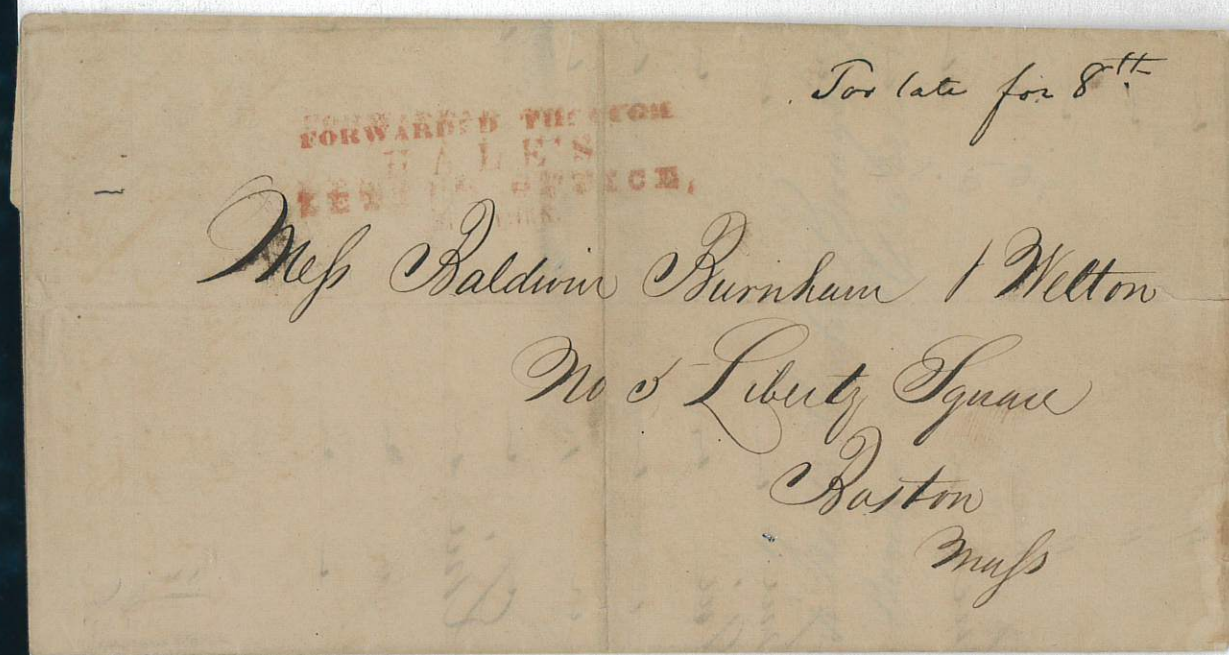 Too late for 8th
FORWARDED THROUGH
HALE'S
LETTER OFFICE,
Mess Baldwin Burnham & Welton
No 5 Liberty Square
Boston
Mass